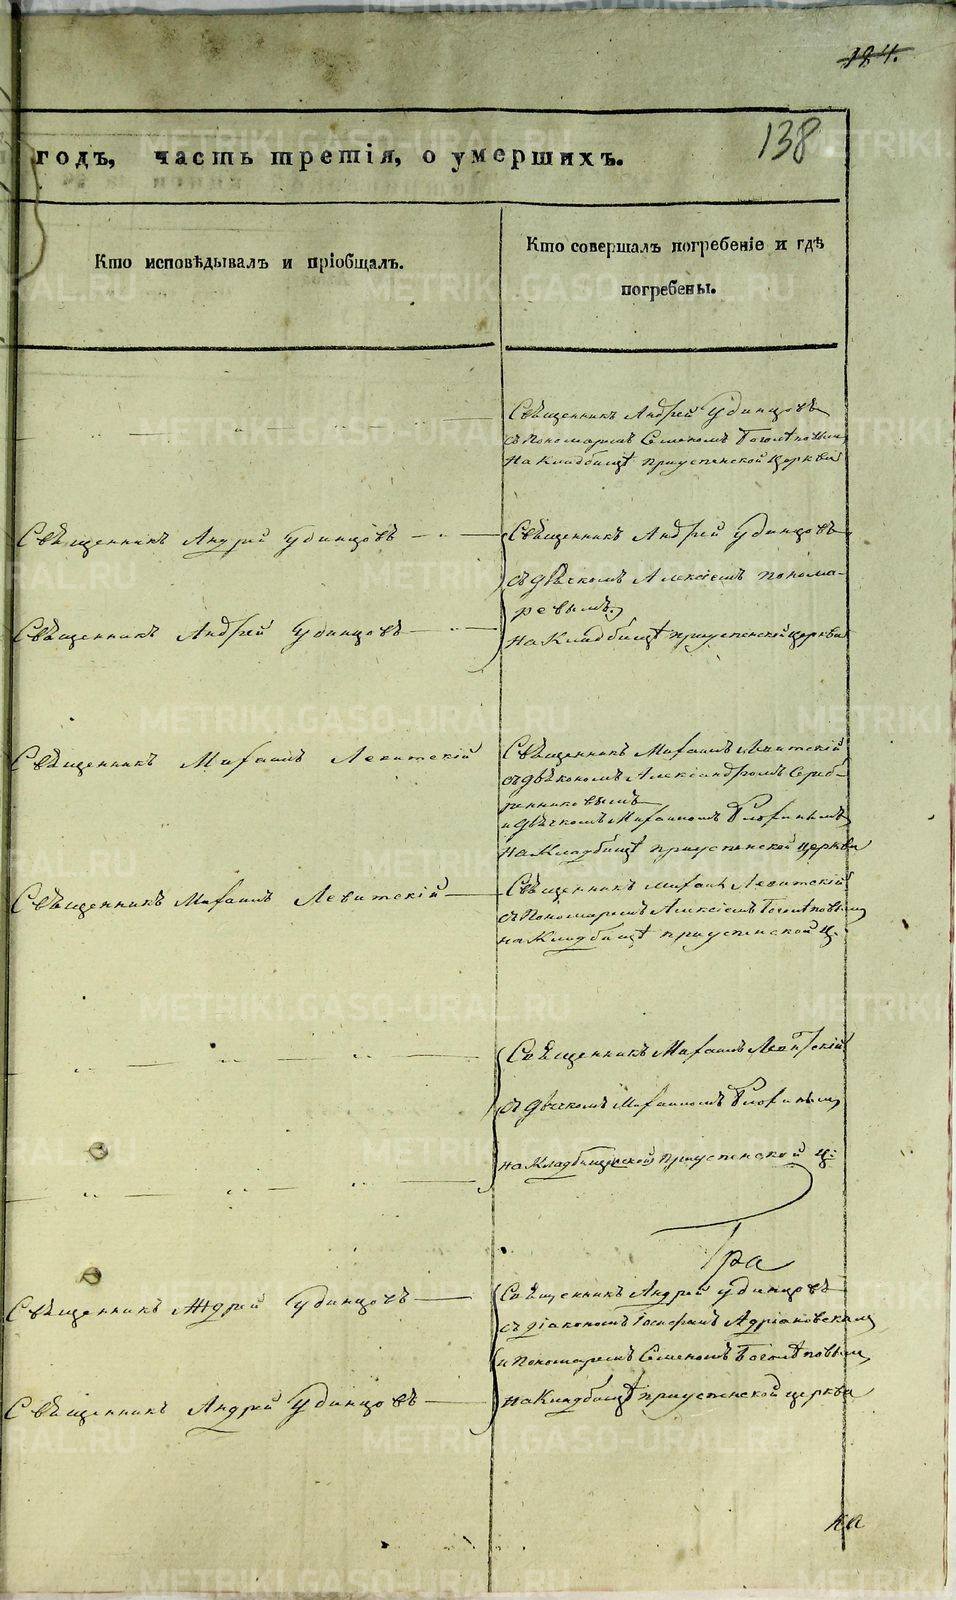 184.
138
годъ, часть третія, о умершихъ.
Кто исповѣдывалъ и пріобщалъ.
Кто совершалъ погребеніе и гдѣ
погребены.
Священникъ Андрей Удинцовъ
съ Пономаремъ Семеномъ Боголѣповымъ
На Кладбищѣ приуспенской церкви
Священникъ Андрей Удинцовъ
Священникъ Андрей Удинцовъ
съ дьячкомъ Алексіемъ понома-
ревымъ
Священникъ Андрей Удинцовъ
на Кладбищѣ приуспенской церкви
Священникъ Михаилъ Левитскій
Священникъ Михаилъ Левитскій
съ дьякономъ Александромъ Сереб-
ренниковымъ
и дьячкомъ Михаиломъ
на Кладбищѣ приуспенской церкви
Священникъ Михаилъ Левитскій
Священникъ Михаилъ Левитскій
съ Пономаремъ Алексіемъ Боголѣповымъ
на Кладбищѣ приуспенской ц.
Священникъ Михаилъ Левитскій
съ дьячкомъ Михаиломъ
на Кладбищенской приуспенской ц:
Гра
Священникъ Андрей Удинцовъ
Священникъ Андрей Удинцовъ
съ діакономъ Іосифомъ Адріановскимъ
и Пономаремъ Семеномъ Боголѣповымъ
Священникъ Андрей Удинцовъ
На Кладбищѣ приуспенской церкви
ка
METRIKI.GASO-URAL.RU